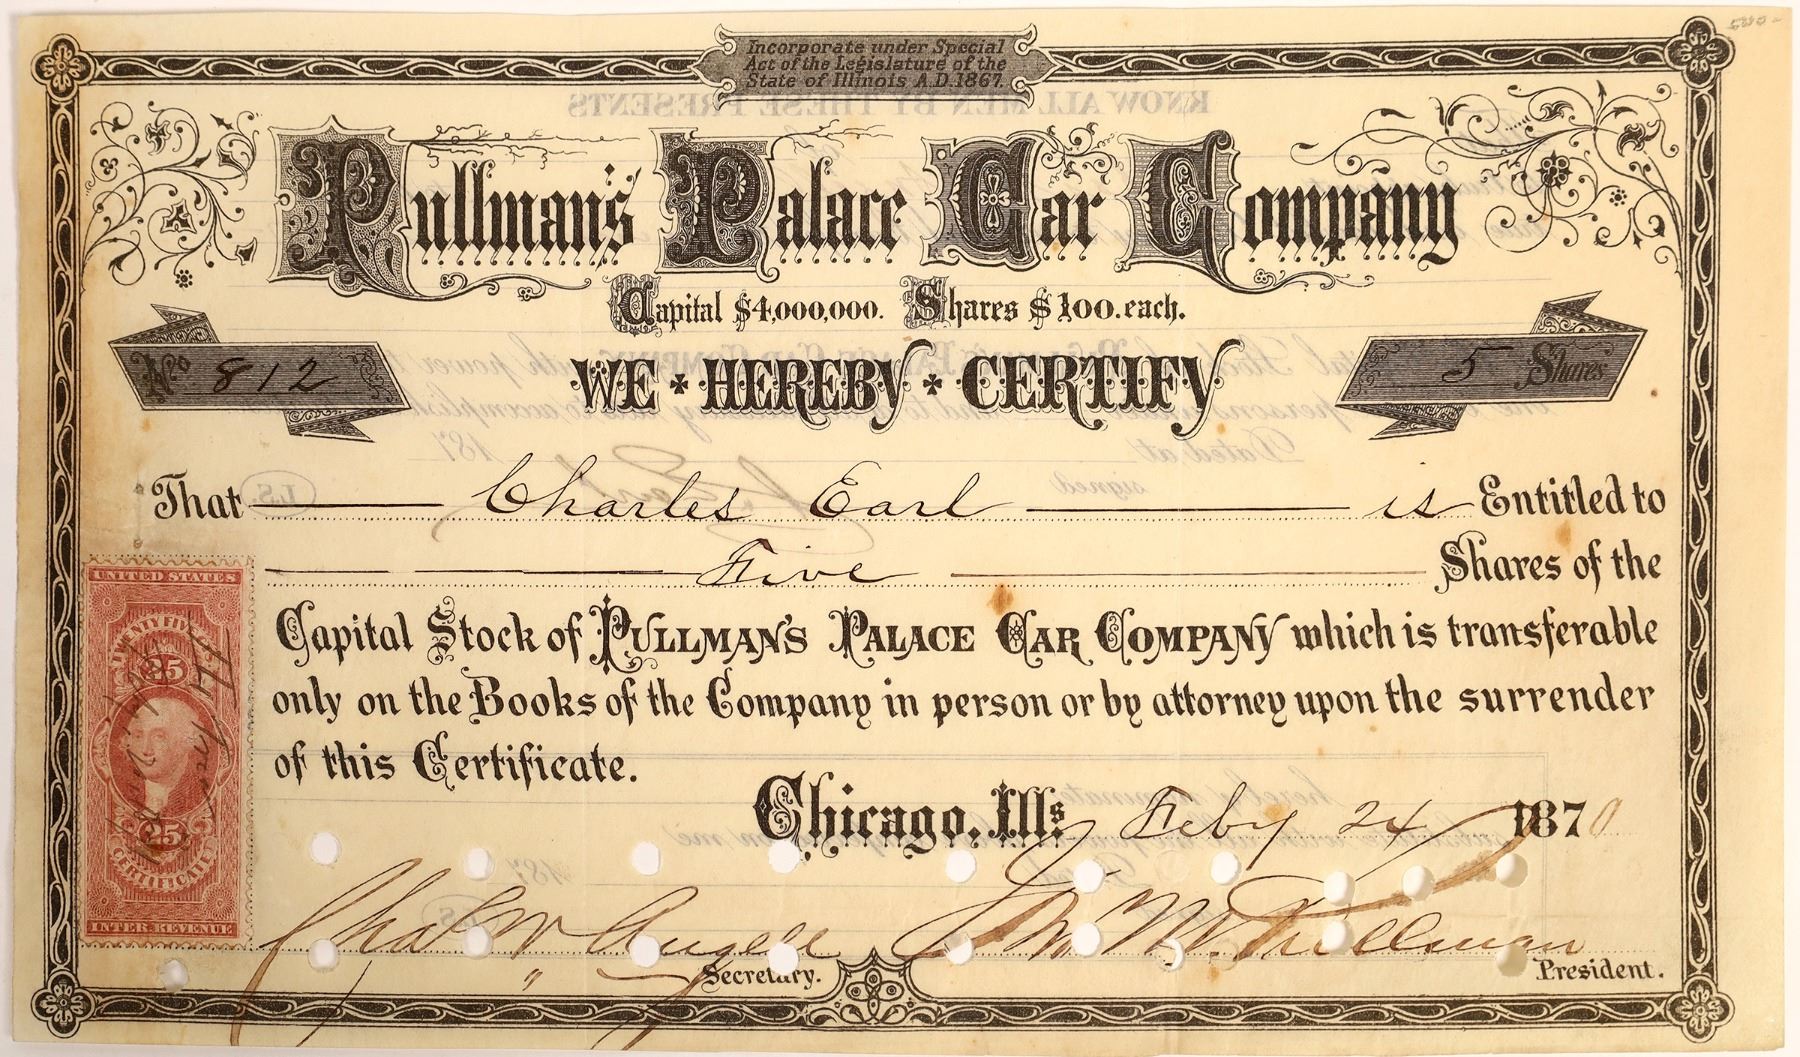 Incorporate under Special
Act of the Legislature of the
State of Illinois A.D. 1867.
KNOW ALL MEN BY THESE PRESENTS
Pullman's Palace Car Company
Capital $4,000,000. Shares $100. each.
No 812
WE HEREBY CERTIFY
5 Shares
Dated at 187
signed
L.S.
That Charles Earl is Entitled to
Five Shares of the
Capital Stock of PULLMAN'S PALACE CAR COMPANY which is transferable
only on the Books of the Company in person or by attorney upon the surrender
of this Certificate.
Chicago, Ills. Feby 24 1870
Chas W Angell Secretary.
Pullman President.
UNITED STATES
TWENTY FIVE
25
25
CERTIFICATE
INTER. REVENUE